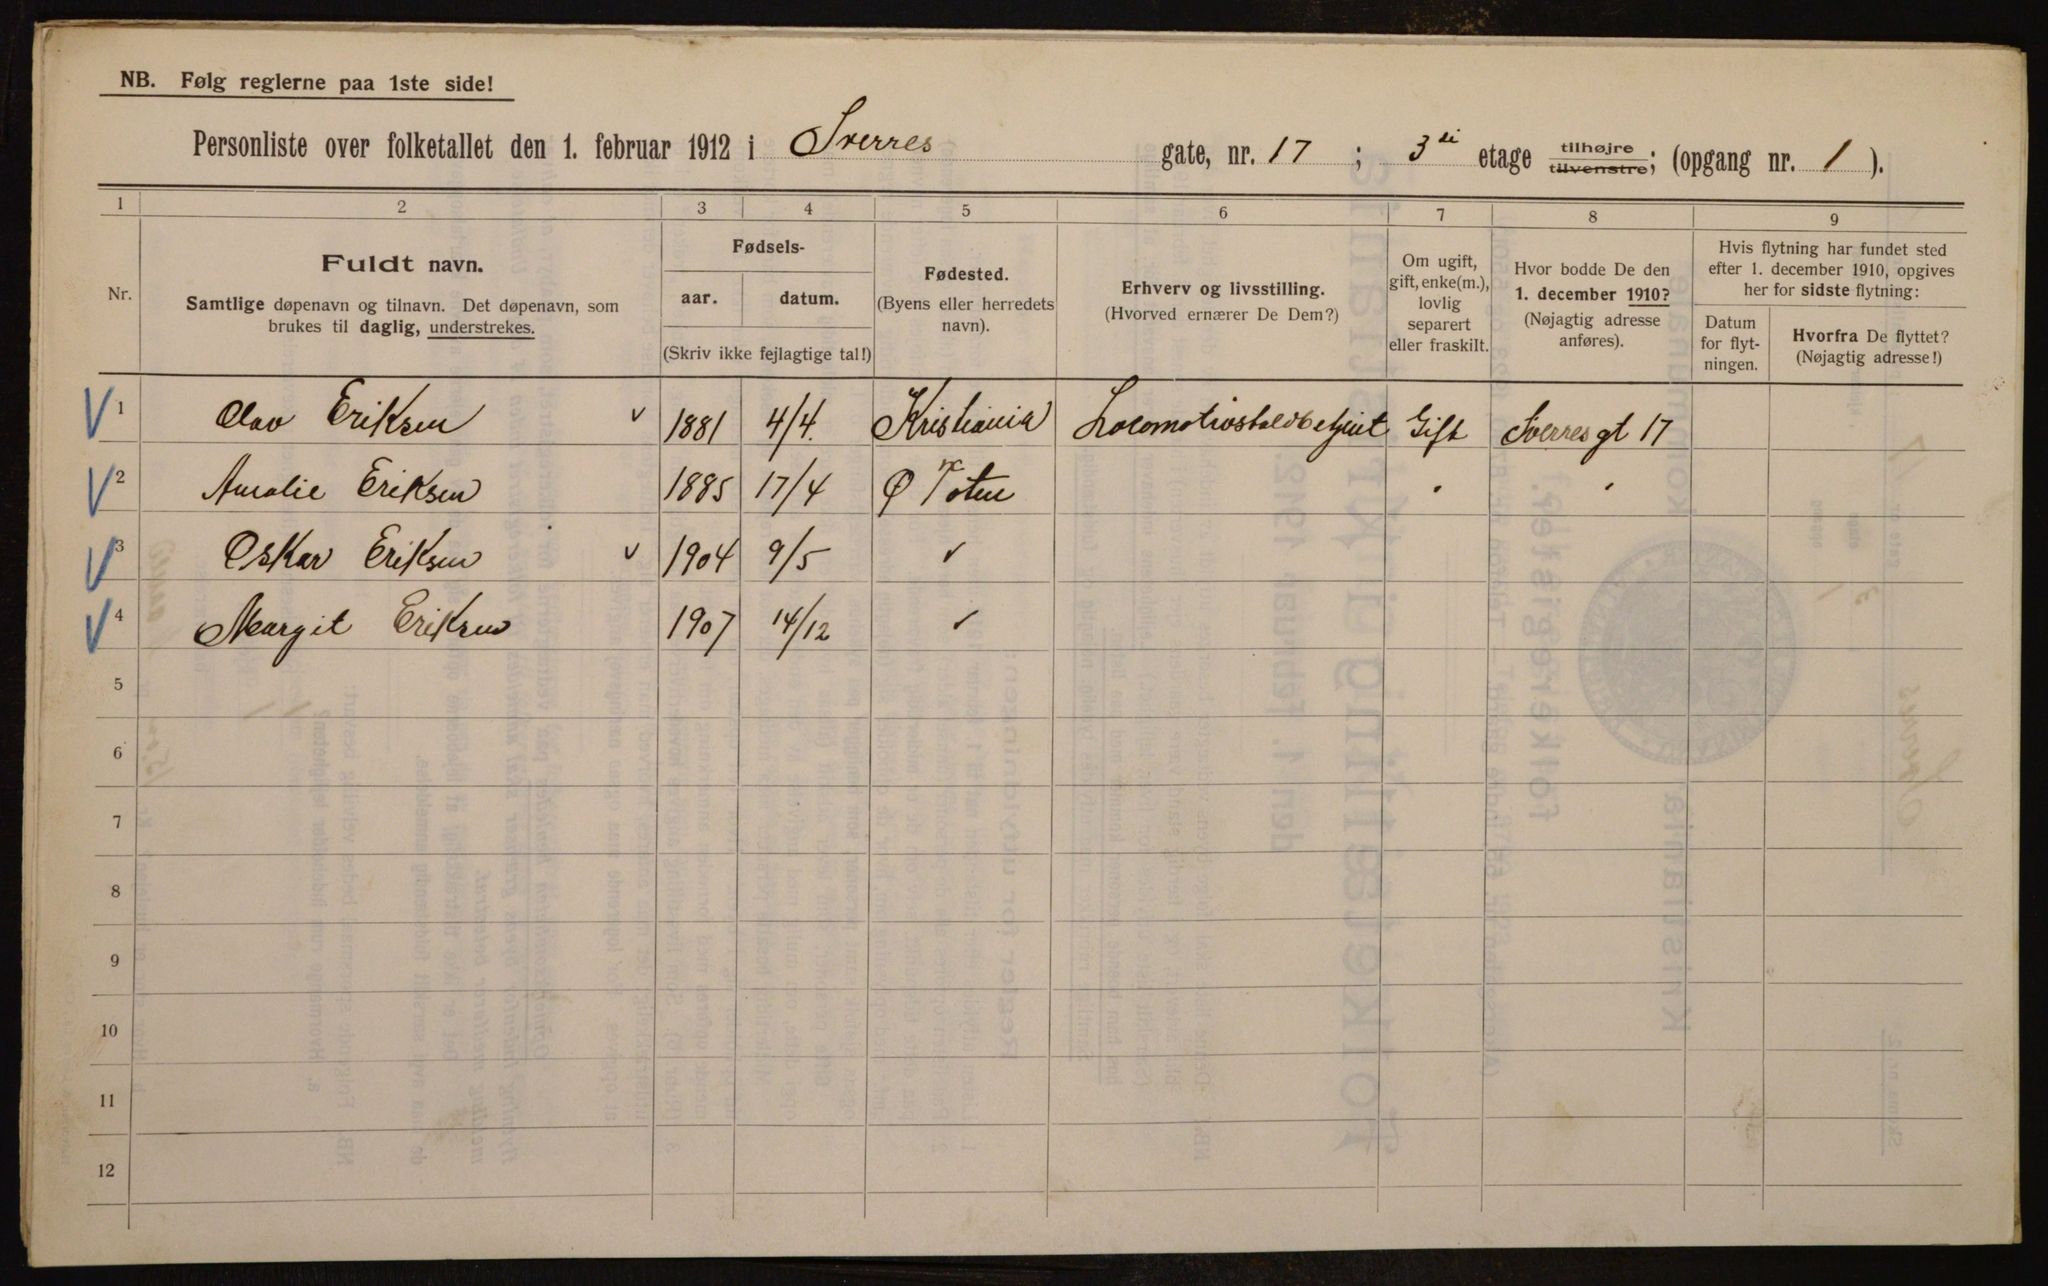 NB. Følg reglerne paa 1ste side!
Personliste over folketallet den 1. februar 1912 i Sverres gate, nr. 17 ; 3 etage tilhøjre tilvenstre; (opgang nr. 1 ).
1 2 3 4 5 6 7 8 9
Nr.
Fuldt navn.
Samtlige døpenavn og tilnavn. Det døpenavn, som
brukes til daglig, understrekes.
Fødsels-
aar. datum.
(Skriv ikke fejlagtige tal!)
Fødested.
(Byens eller herredets
navn).
Erhverv og livsstilling.
(Hvorved ernærer De Dem?)
Om ugift,
gift, enke(m.),
lovlig
separert
eller fraskilt.
Hvor bodde De den
1. december 1910?
(Nøjagtig adresse
anføres).
Hvis flytning har fundet sted
efter 1. december 1910, opgives
her for sidste flytning:
Datum
for flyt-
ningen.
Hvorfra De flyttet?
(Nøjagtig adresse!)
1 Olav Eriksen v 1881 4/4. Kristiania Gift Sverres gt 17
2 Amalie Eriksen 1885 17/4 Ø Toten " "
3 Oskar Eriksen v 1904 9/5 "
4 Margit Eriksen 1907 14/12 "
5
6
7
8
9
10
11
12